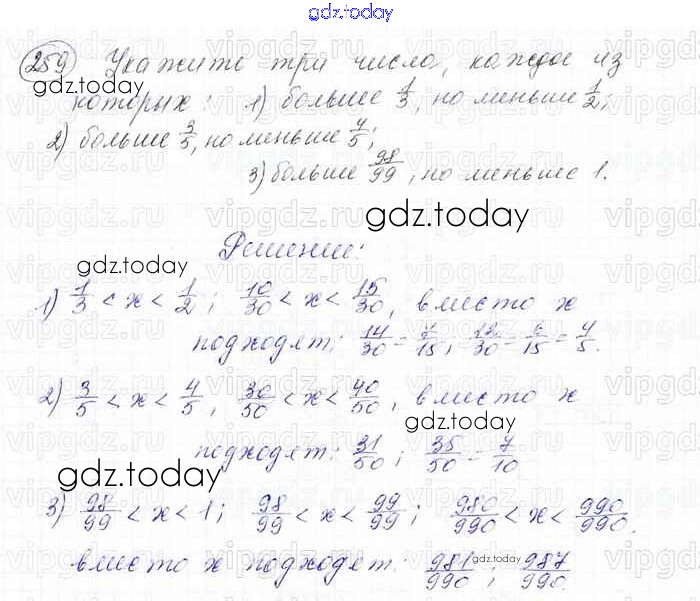 gdz.today
259) Укажите три числа, каждое из
gdz.today
которых: 1) больше 1/3, но меньше 1/2;
2) больше 3/5, но меньше 4/5;
3) больше 98/99, но меньше 1.
gdz.today
Решение:
gdz.today
1) 1/3 < x < 1/2; 10/30 < x < 15/30, вместо x
подходят: 14/30 = 7/15; 12/30 = 6/15 = 4/5.
2) 3/5 < x < 4/5, 30/50 < x < 40/50, вместо x
gdz.today
подходят: 31/50; 35/50 = 7/10
gdz.today
3) 98/99 < x < 1; 98/99 < x < 99/99; 980/990 < x < 990/990.
вместо x подходят: 981/990; 987/990.
gdz.today
vipgdz.ru